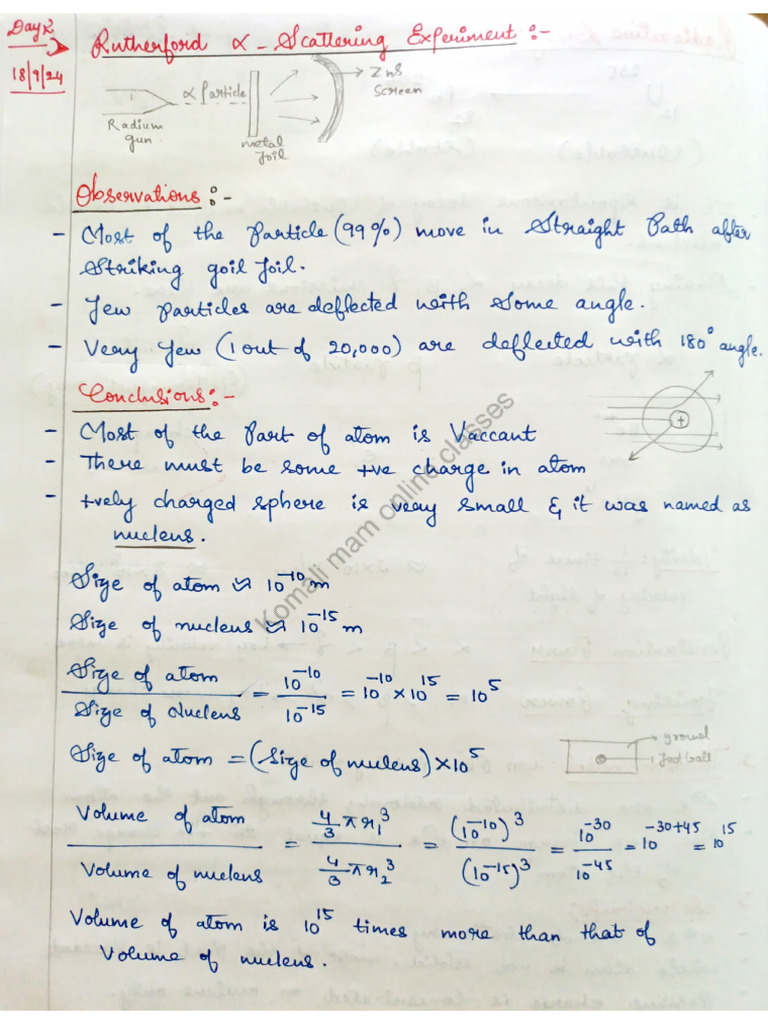 Day 2
18/9/24
Rutherford α - Scattering Experiment :-
α Particle
ZnS
Screen
Radium
gun.
metal
foil
Observations :-
- Most of the Particle (99%) move in Straight Path after
striking goil foil.
- Few particles are deflected with some angle.
- Very few (1 out of 20,000) are deflected with 180° angle.
Conclusions :-
- Most of the Part of atom is Vaccant
- There must be some +ve charge in atom
- +vely charged sphere is very small & it was named as
nucleus.
+
Size of atom ≈ 10⁻¹⁰ m
Size of nucleus ≈ 10⁻¹⁵ m
Size of atom / Size of Nucleus = 10⁻¹⁰ / 10⁻¹⁵ = 10⁻¹⁰ × 10¹⁵ = 10⁵
Size of atom = (Size of nucleus) × 10⁵
ground
foot ball
Volume of atom / Volume of nucleus = 4/3 π r₁³ / 4/3 π r₂³ = (10⁻¹⁰)³ / (10⁻¹⁵)³ = 10⁻³⁰ / 10⁻⁴⁵ = 10⁻³⁰⁺⁴⁵ = 10¹⁵
Volume of atom is 10¹⁵ times more than that of
Volume of nucleus.
Komali mam online classes